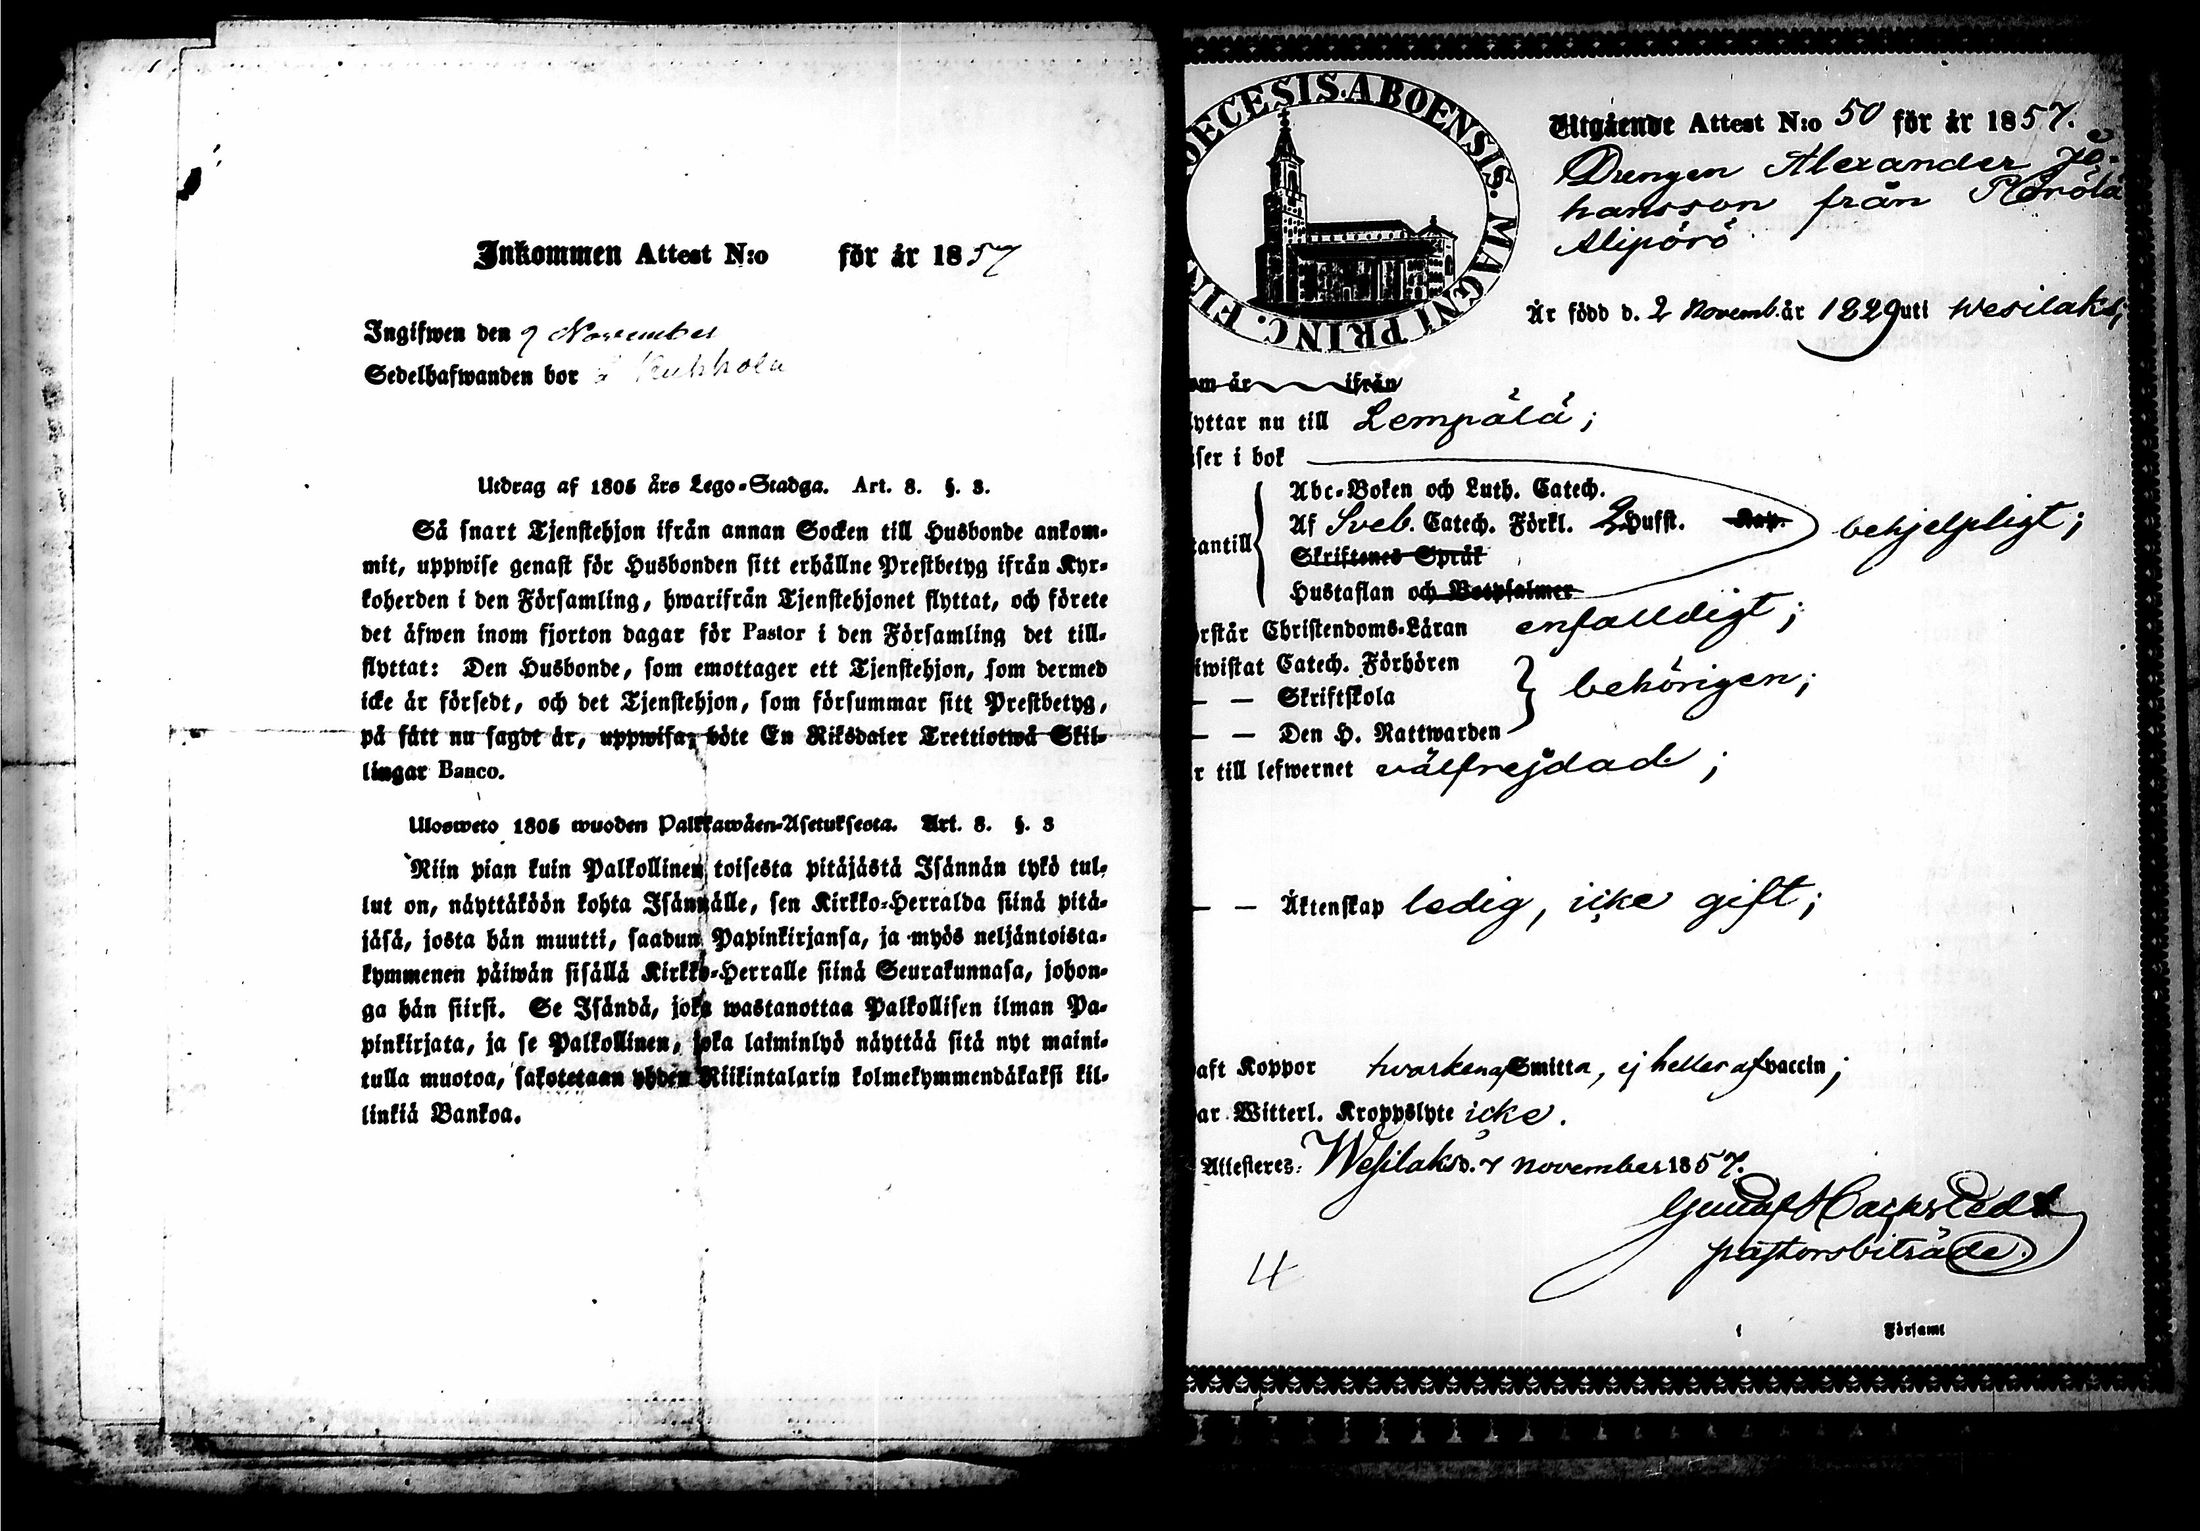 Inkommen Attest N:o för år 1857
Ingifwen den 9 November
Sedelhafwanden bor
Utdrag af 1805 års Lego-Stadga. Art. 8. §. 3.
Så snart Tjenstehjon ifrån annan Socken till Husbonde ankom-
mit, uppwise genast för Husbonden sitt erhållne Prestbetyg ifrån Kyr-
koherden i den Församling, hwarifrån Tjenstehjonet flyttat, och förete
det äfwen inom fjorton dagar för Pastor i den Församling det till-
flyttat: Den Husbonde, som emottager ett Tjenstehjon, som dermed
icke är försedt, och det Tjenstehjon, som försummar sitt Prestbetyg,
på sätt nu sagdt är, uppwisa, böte En Riksdaler Trettiotwå Skil-
lingar Banco.
Ulosweto 1805 wuoden Palkkawäen-Asetuksesta. Art. 8. §. 3
Niin pian kuin Palkollinen toisesta pitäjästä Isännän tykö tul-
lut on, näyttäköön kohta Isännälle, sen Kirkko-Herralda siinä pitä-
jäsä, josta hän muutti, saadun Papinkirjansa, ja myös neljäntoista-
kymmenen päiwän sisällä Kirkko-Herralle siinä Seurakunnasa, johon-
ga hän siirsi. Se Isändä, joka wastanottaa Palkollisen ilman Pa-
pinkirjata, ja se Palkollinen, joka laiminlyö näyttää sitä nyt maini-
tulla muotoa, sakotetaan yhden Riikintalarin kolmekymmendäkaksi kil-
linkiä Bankoa.
OECESIS. ABOENSIS. MAGNI PRINC. FIN
Utgående Attest N:o 50 för år 1857.
Drengen Alexander Jo-
hansson från
Alipörö
Är född d. 2 Novemb. år 1829 uti Wesilaks;
om är ifrån
lyttar nu till Lempälä;
äser i bok
Abc-Boken och Luth. Catech.
Af Sveb. Catech. Förkl. 2 Hufst. Kap.
tantill
Skriftenes Språk
behjelpligt;
Hustaflan och Botpsalmer
örstår Christendoms-Läran enfalldigt;
iwistat Catech. Förhören
— — Skriftskola
behörigen;
— — Den H. Nattwarden
r till lefwernet välfrejdad;
— — Äktenskap ledig, icke gift;
aft Koppor hvarken af Smitta, ej heller af vaccin;
ar Witterl. Kroppslyte icke.
Attesteres: Wesilaks d. 7 november 1857.
pastorsbiträde.
4
Församl